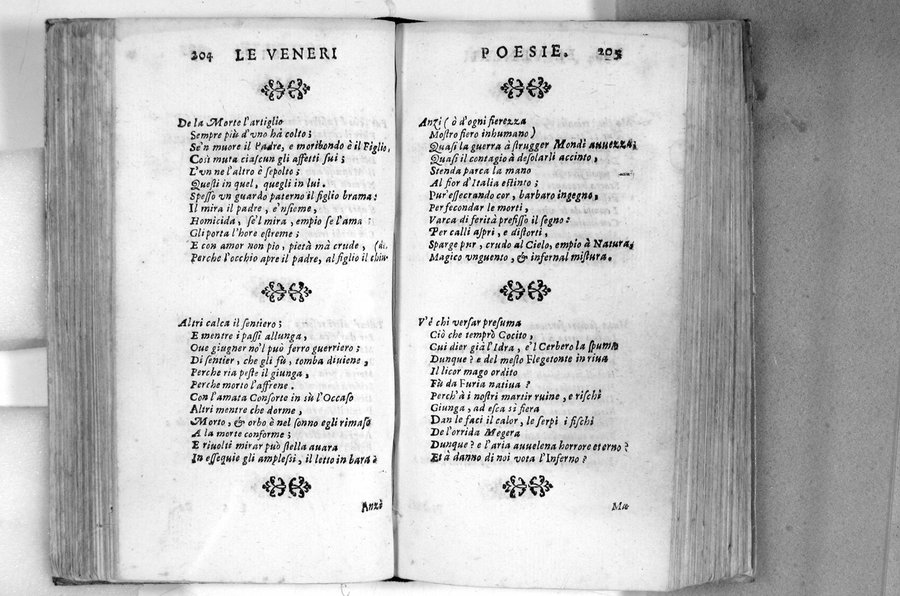 204 LE VENERI
De la Morte l'artiglio
Sempre più d'vno hà colto;
Se'n muore il Padre, e moribondo è il Figlio,
Così muta ciascun gli affetti sui;
L'vn ne l'altro è sepolto;
Questi in quel, quegli in lui.
Spesso vn guardo paterno il figlio brama:
Il mira il padre, e'nsieme,
Homicida, se'l mira, empio se l'ama:
Gli porta l'hore estreme;
E con amor non pio, pietà mà crude, (di.
Perche l'occhio apre il padre, al figlio il chiu-
Altri calca il sentiero;
E mentre i passi allunga,
Oue giugner no'l può ferro guerriero;
Di sentier, che gli fù, tomba diuiene,
Perche ria peste il giunga,
Perche morto l'affrene.
Con l'amata Consorte in sù l'Occaso
Altri mentre che dorme,
Morto, & orbo è nel sonno egli rimaso
A la morte conforme;
E riuolti mirar può stella auara
In essequie gli amplessi, il letto in bara è
Anzi
POESIE. 205
Anzi (ò d'ogni fierezza
Mostro fiero inhumano)
Quasi la guerra à strugger Mondi auuezza;
Quasi il contagio à desolarli accinto,
Stenda parca la mano
Al fior d'Italia estinto;
Pur'essecrando cor, barbaro ingegno,
Per fecondar le morti,
Varca di ferità prefisso il segno:
Per calli aspri, e distorti,
Sparge pur, crudo al Cielo, empio à Natura;
Magico vnguento, & infernal mistura.
V'è chi versar presuma
Ciò che temprò Cocito,
Cui dier già l'Idra, e'l Cerbero la spuma
Dunque? e del mesto Flegetonte in riua
Il licor mago ordito
Fù da Furia natiua?
Perch'à i nostri martir ruine, e rischi
Giunga, ad esca sì fiera
Dan le faci il calor, le serpi i fischi
De l'orrida Megera
Dunque? e l'aria auuelena horrore eterno?
Et à danno di noi vota l'Inferno?
Ma